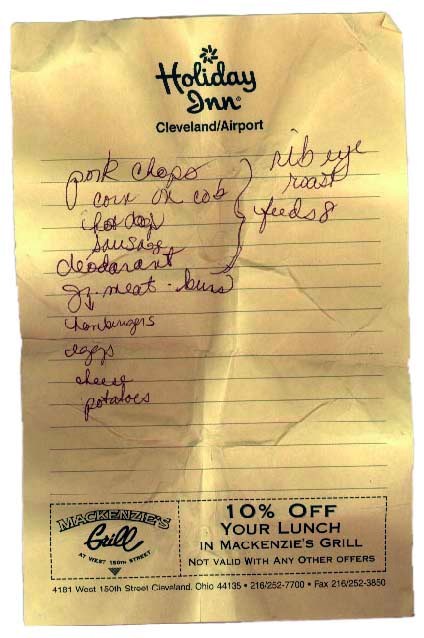 Holiday
Inn®
Cleveland/Airport
pork chops
corn on cob
hot dogs
sausage
deodorant
gr. meat - buns
hamburgers
eggs
cheese
potatoes
rib eye
roast
feeds 8
MACKENZIE'S
Grill
AT WEST 150TH STREET
10% OFF
YOUR LUNCH
IN MACKENZIE'S GRILL
NOT VALID WITH ANY OTHER OFFERS
4181 West 150th Street Cleveland, Ohio 44135 • 216/252-7700 • Fax 216/252-3850